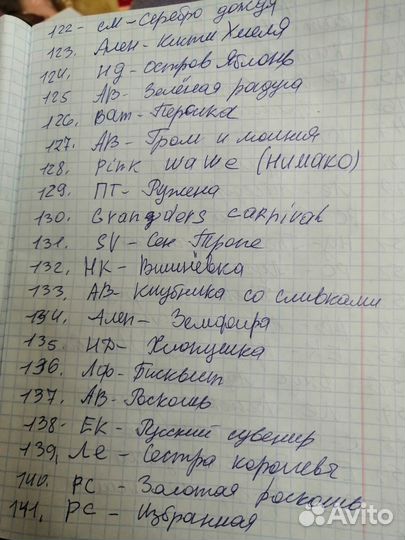 122- СМ-Серебро дождя
123. Ален-Кисти Хмеля
124. НД-остров Яблонь
125 АВ-Зелёная радуга
126. Ват-Перолка
127. АВ-Гром и молния
128. Pink wawe (Нимако)
129. ПТ-Ружена
130. Grangders carnival
131. SV-Сен Тропе
132. НК-Вишнёвка
133. АВ-Клубника со сливками
134. Ален-Земфира
135 НД-Хлопушка
136. Лф-Бисквит
137. АВ-Роскошь
138- ЕК-Русский сувенир
139. Ле-Сестра королевы
140. РС-Золотая роскошь
141. РС-Избранная
Avito